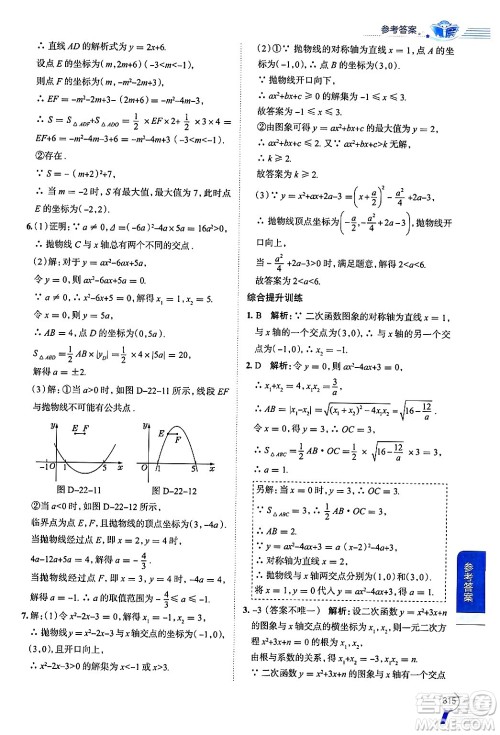 参考答案
∴ 直线 AD 的解析式为 y=2x+6.
设点 E 的坐标为(m,-m²-2m+3) (-3<m<0),
则点 F 的坐标为(m,2m+6),
∴ EF=-m²-2m+3-(2m+6)=-m²-4m-3.
∴ S=S△ADF+S△ADO=1/2×EF×2+1/2×3×4=
EF+6=-m²-4m-3+6=-m²-4m+3.
②存在.
∵ S=-(m+2)²+7,
∴ 当 m=-2 时,S 有最大值,最大值为7,此时点 E 的坐标为(-2,2).
6.(1)证明:∵ a≠0,Δ=(-6a)²-4a×5a=16a²>0,
∴ 抛物线 C 与 x 轴总有两个不同的交点.
(2)解:y=ax²-6ax+5a,
令 x=0,则 y=5a,
令 y=ax²-6ax+5a=0,解得 x₁=1,x₂=5.
∴ AB=4,点 D 的坐标为(0,5a).
S△ABD=1/2×AB×|yD|=1/2×4×|5a|=20,
解得 a=±2.
(3)解:①当 a>0 时,如图 D-22-11,线段 EF
与抛物线不可能有公共点.
y
E F
-1 O 1 5 x
图 D-22-11
y
E F
O 1 5 x
图 D-22-12
②当 a<0 时,如图 D-22-12,
临界点为点 E,F,当抛物线的顶点坐标为(3,-4a).
4a-12a+5a=4,解得 a=-4/3.
∴ a 的取值范围为 a≤-4/3.
7.解:(1)令 y=x²-2x-3=0,解得 x₁=-1,x₂=3,
∴ 抛物线 y=x²-2x-3 与 x 轴交点的坐标为(-1,0),
(3,0),且开口向上.
∴ x²-2x-3>0 的解集是 x<-1 或 x>3.
(2)①∵ 抛物线的对称轴为直线 x=1,点 A 的坐
标为(-1,0),
∴ 点 B 的坐标为(3,0).
∵ 抛物线开口向下,
∴ ax²+bx+c≥0 的解集为 -1≤x≤3.
故答案为 -1≤x≤3.
②由图象可得 y=ax²+bx+c 的最大值为 y=2.
∵ ax²+bx+c≤k 恒成立,
∴ k≥2.
故答案为 k≥2.
∴ 抛物线开口向上.
故答案为 2<a<6.
综合提升训练
1. B 解析:∵ 二次函数图象的对称轴为直线 x=1,
与 x 轴的一个交点为(3,0),∴ 与 x 轴的另一个交
点为(-1,0).∴ x₂=-1.
2. D 解析:令 y=ax²-4ax+3=0,
∴ x₁+x₂=4,x₁·x₂=3/a.
∴ AB=|x₁-x₂|=√((x₁+x₂)²-4x₁x₂)=√(16-12/a).
令 x=0,则 y=3,∴ OC=3.
∵ S△ABC=1/2 AB·OC=3,∴ 1/2×√(16-12/a)×3=3.
解得 a=1.
另解:当 x=0 时,y=3,∴ OC=3.
∵ S△ABC=3,∴ 1/2 AB·OC=3.
∴ AB=2.
∵ y=ax²-4ax+3,
∴ 对称轴为直线 x=2.
∴ 抛物线与 x 轴两交点分别为(1,0),(3,0).
将(1,0)代入 y=ax²-4ax+3,解得 a=1.
3. -3 (答案不唯一) 解析:设二次函数 y=x²+3x+n
的图象与 x 轴交点的横坐标为 x₁,x₂,即一元二次
方程 x²+3x+n=0 的根为 x₁,x₂,
由根与系数的关系得 x₁+x₂=-3,x₁·x₂=n.
∵ 一次函数 y=x²+3x+n 的图象与 x 轴的两个交点
参考答案
315